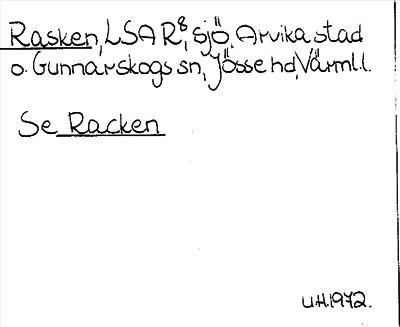 Rasken, LSA R8, sjö, Arvika stad
o. Gunnarskogs sn, Jösse hd, Värml.l.
Se Racken
U.H.1972.